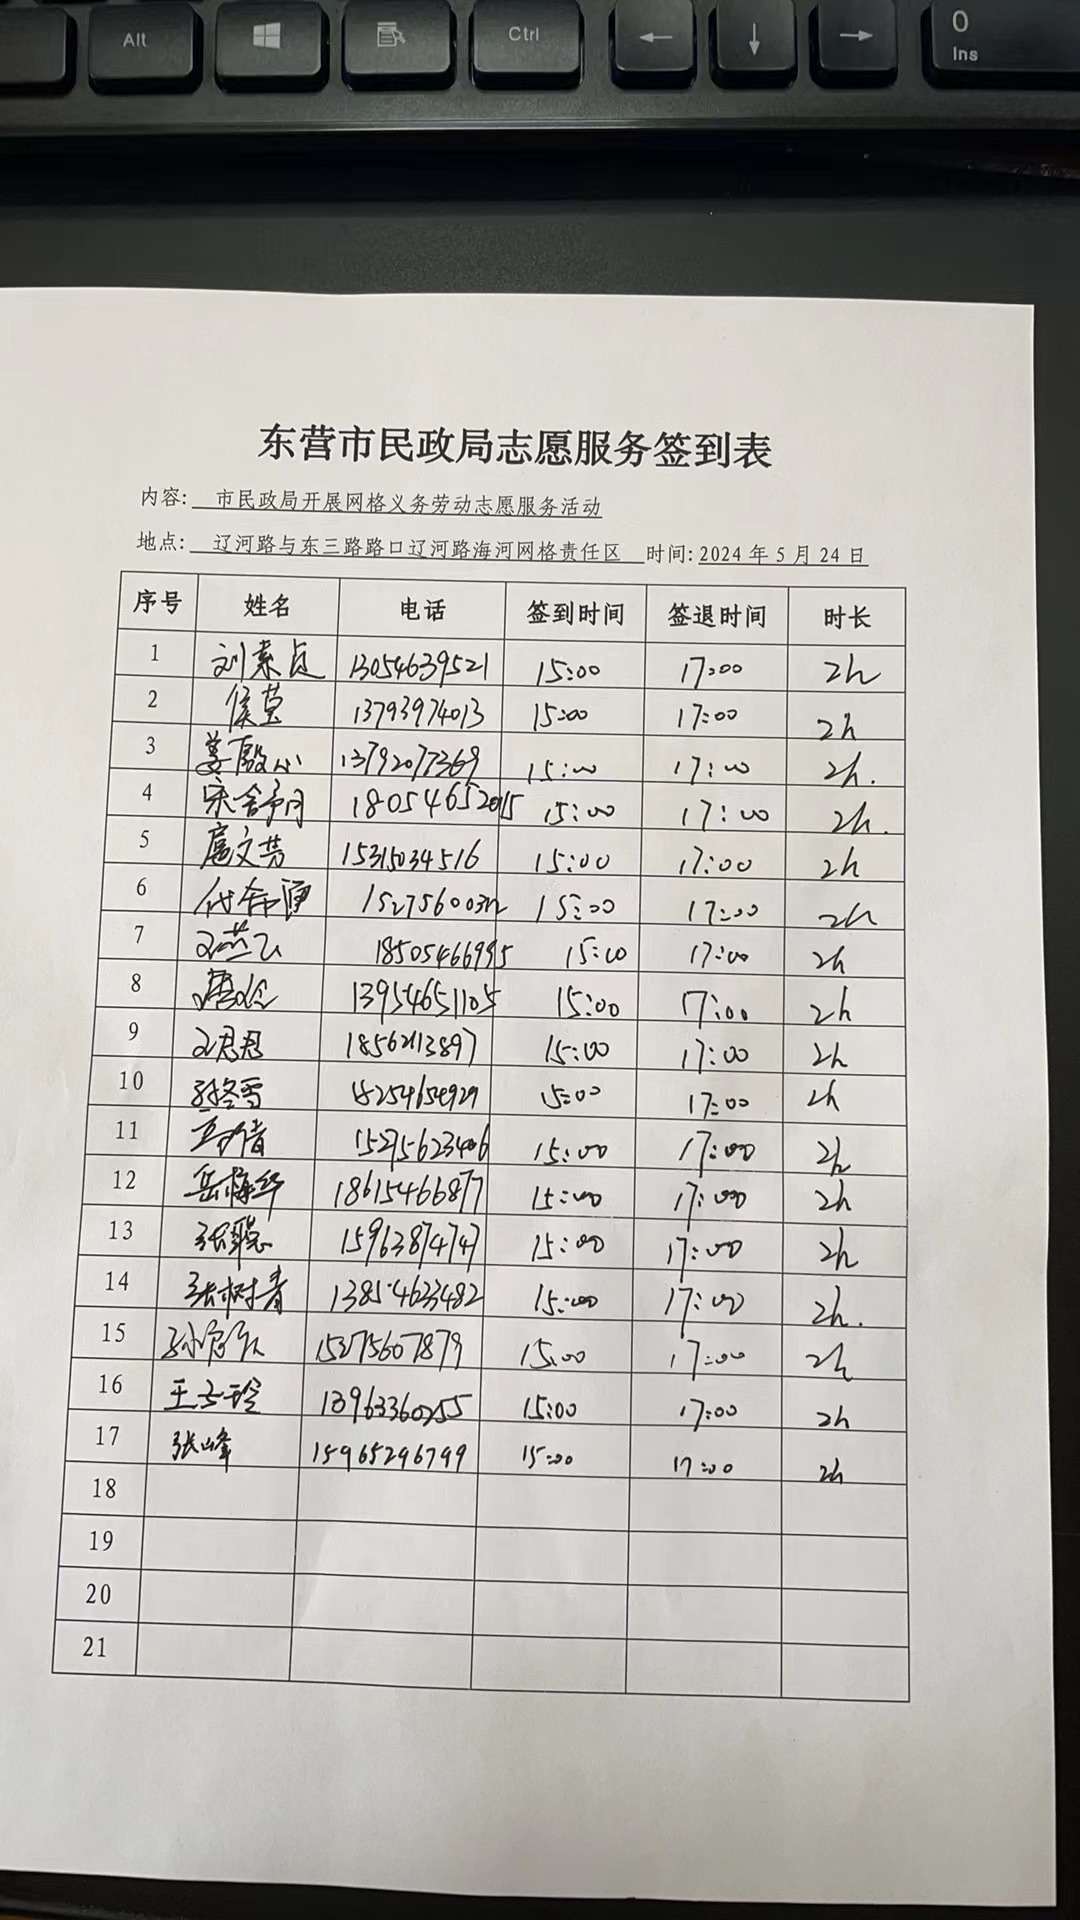 Alt
Ctrl
0
Ins
东营市民政局志愿服务签到表
内容: 市民政局开展网格义务劳动志愿服务活动
地点: 辽河路与东三路路口辽河路海河网格责任区 时间: 2024 年 5 月 24 日
序号 姓名 电话 签到时间 签退时间 时长
1 刘素贞 13054639521 15:00 17:00 2h
2 侯莹 13793974013 15:00 17:00 2h
3 姜殿心 13792077369 15:00 17:00 2h.
4 宋舍予月 18054652015 15:00 17:00 2h.
5 扈文芳 15315034516 15:00 17:00 2h
6 15:00 17:00 2h
7 18505466995 15:00 17:00 2h
8 13954651105 15:00 17:00 2h
9 王君君 18562113897 15:00 17:00 2h
10 孙冬雪 18254654929 15:00 17:00 2h
11 15275623406 15:00 17:00 2h
12 岳梅华 18615466877 15:00 17:00 2h
13 张聪 15963874747 15:00 17:00 2h
14 张树青 13854623482 15:00 17:00 2h.
15 15275607879 15:00 17:00 2h
16 王子玲 13963360255 15:00 17:00 2h
17 张峰 15965296799 15:00 17:00 2h
18
19
20
21